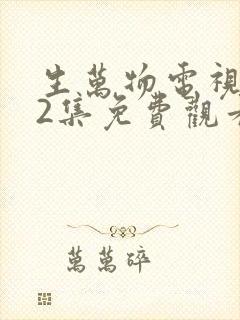 生萬物電視
2集免費觀
萬萬碎